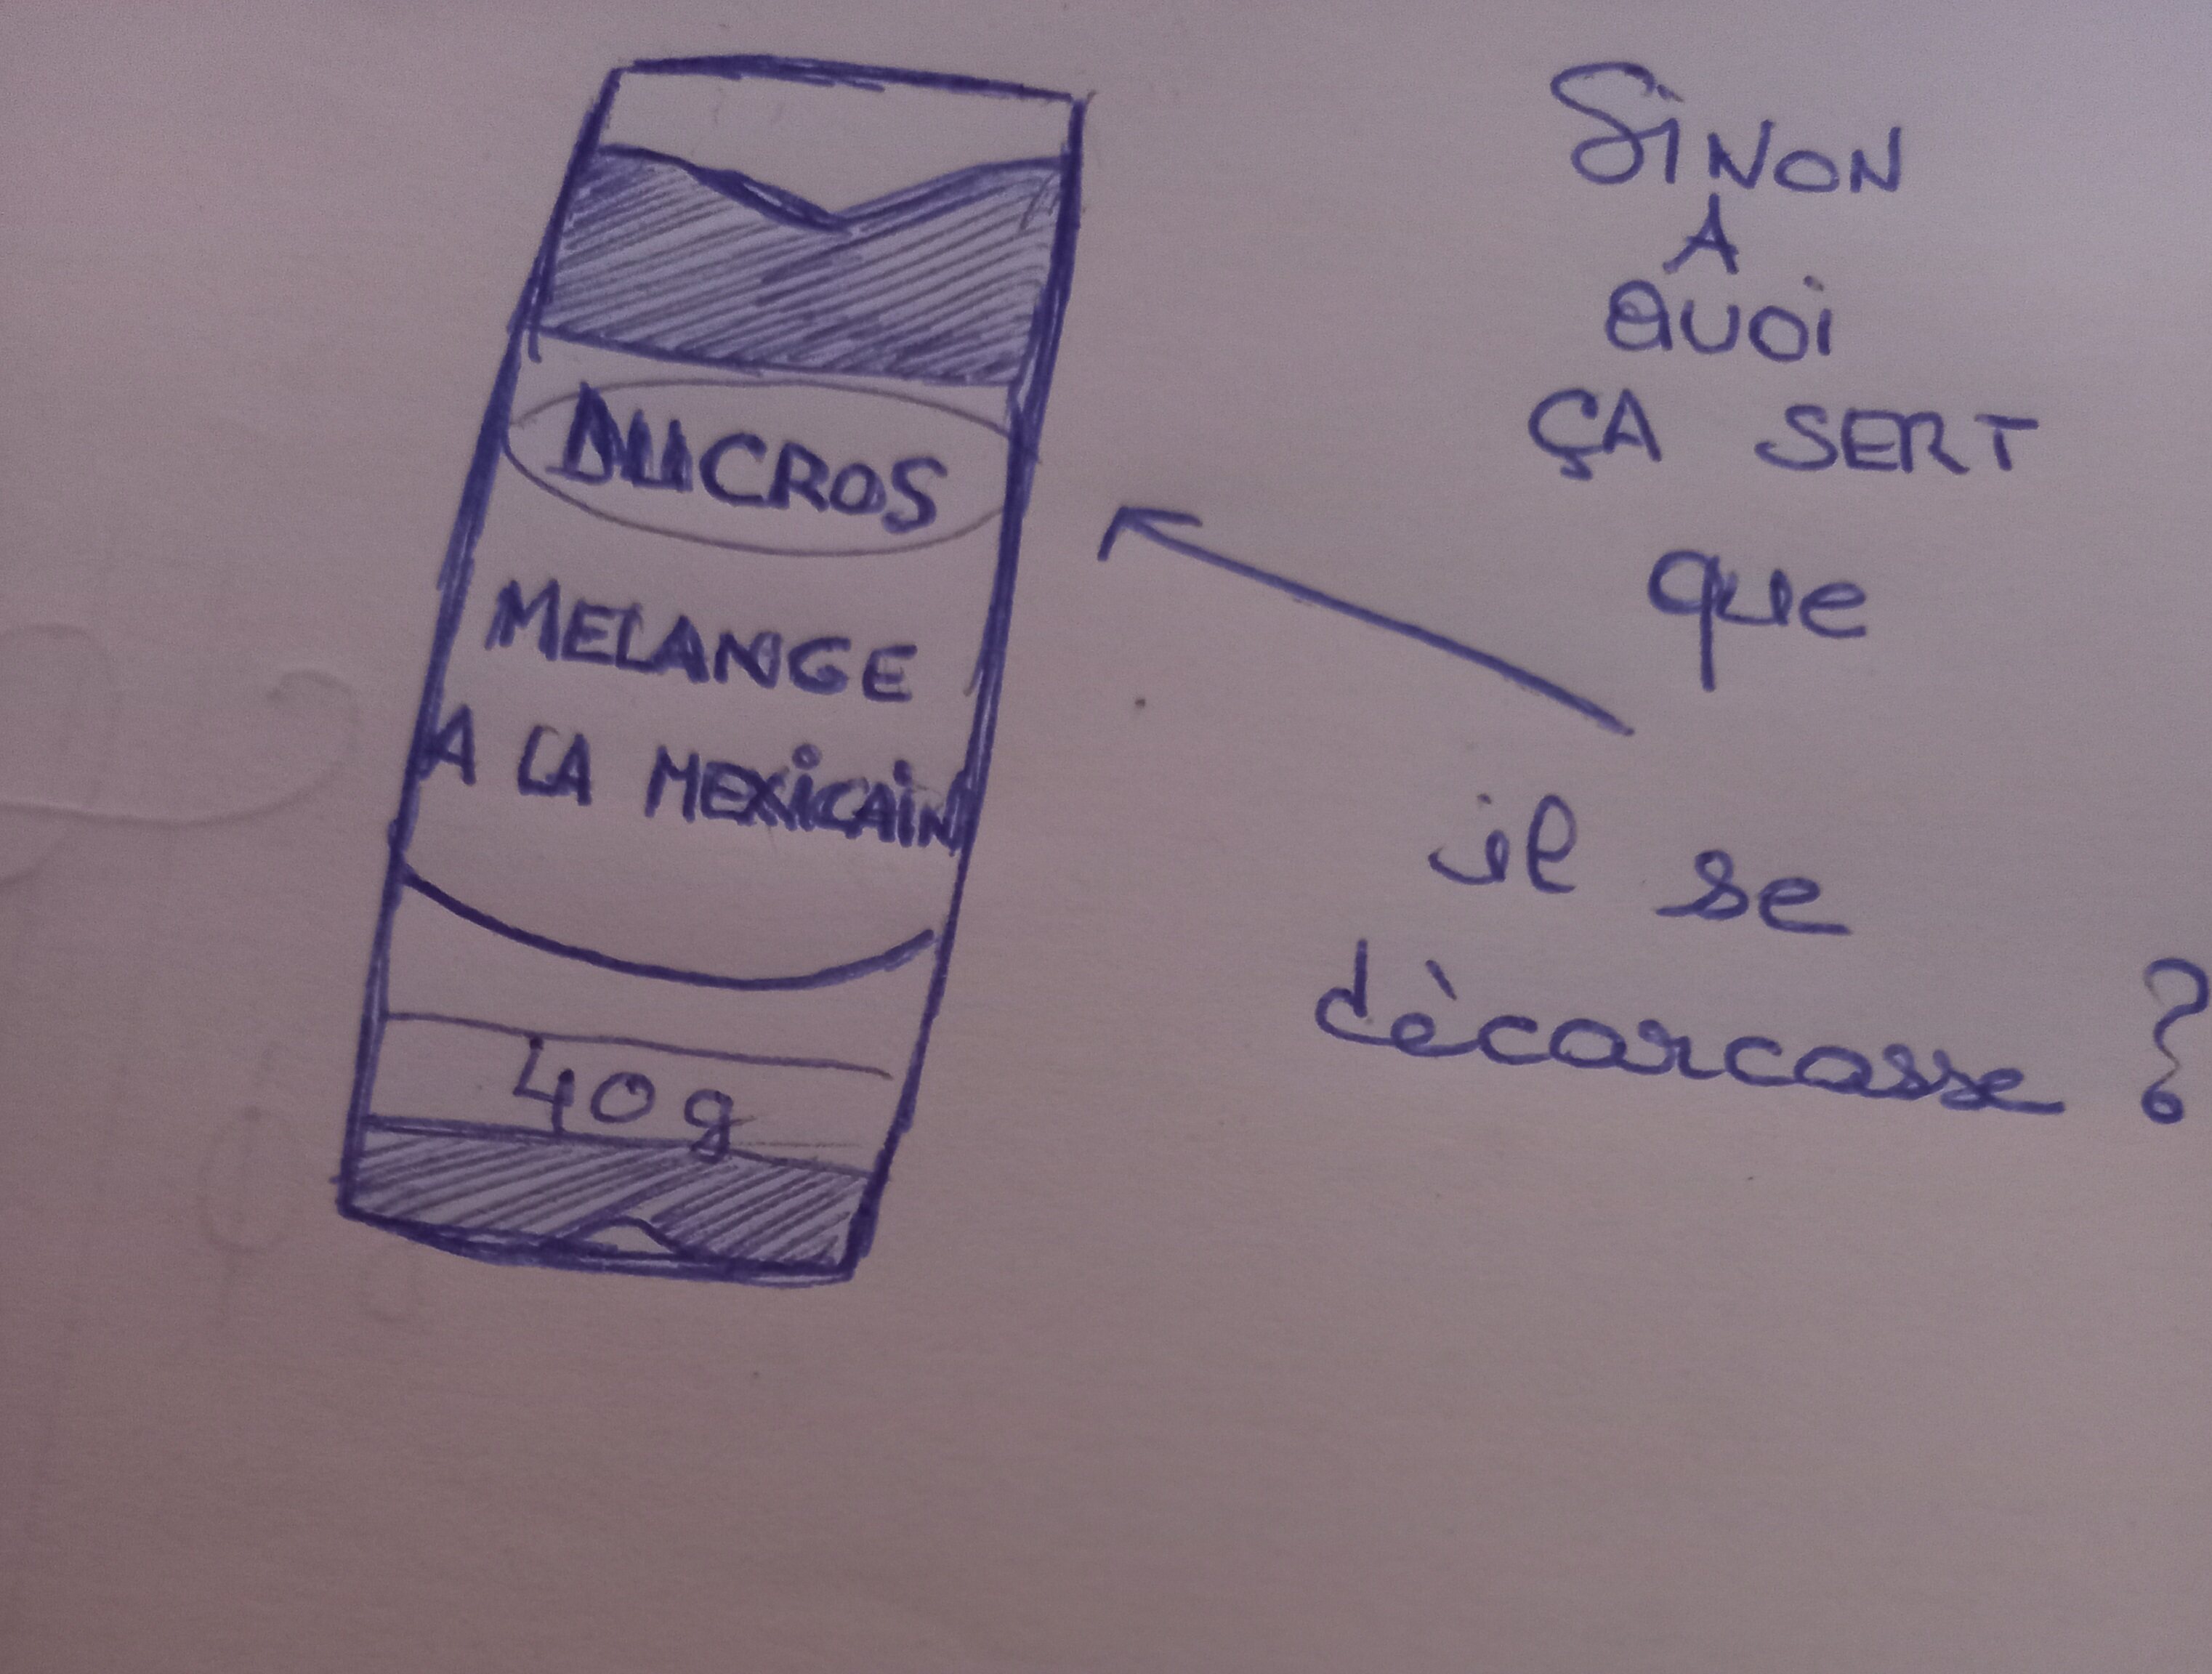 DUCROS
MELANGE
A LA MEXICAIN
40g
SiNON
A
QUOi
ÇA SERT
que
il se
dècarcasse ?